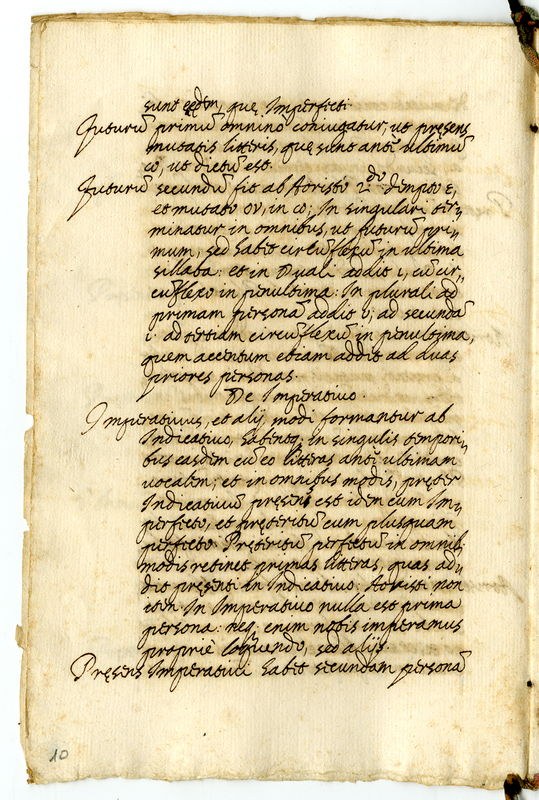 sunt eędem, quę Imperfecti.
Futurū primū omnino coniugatur, ut pręsens
mutatis litteris, quę sunt antȩ ultimū
ω, ut dictū est.
Futurū secundū fit ab Aoristo 2do dempto ε,
et mutato ον, in ω; In singulari ter„
minatur in omnibus, ut futurū pri„
mum, sed habet circūflexū in ultima
sillaba: et in Duali addit ι, cū cir„
cūflexo in penultima: In plurali ad
primam personā addit υ; ad secundā
ι. ad tertiam circūflexū in penultima,
quem accentum etiam addit ad duas
priores personas.
De Imperatiuo.
Imperatiuus, et alij modi formantur ab
Indicatiuo, habentq; in singulis tempori„
bus easdem cū eo litteras antȩ ultimam
vocalem; et in omnibus modis, pręter
Indicatiuū pręsens est idem cum Im„
perfecto, et pręteritū cum plusquam
perfecto. Pręteritū perfectū in omnib.
modis retinet primas litteras, quas ad„
dit pręsenti in Indicatiuo: Aoristi non
item. In Imperatiuo nulla est prima
persona: neq. enim nobis imperamus
propriè loquendo, sed alijs.
Pręsens Imperatiui habet secundam personā
10